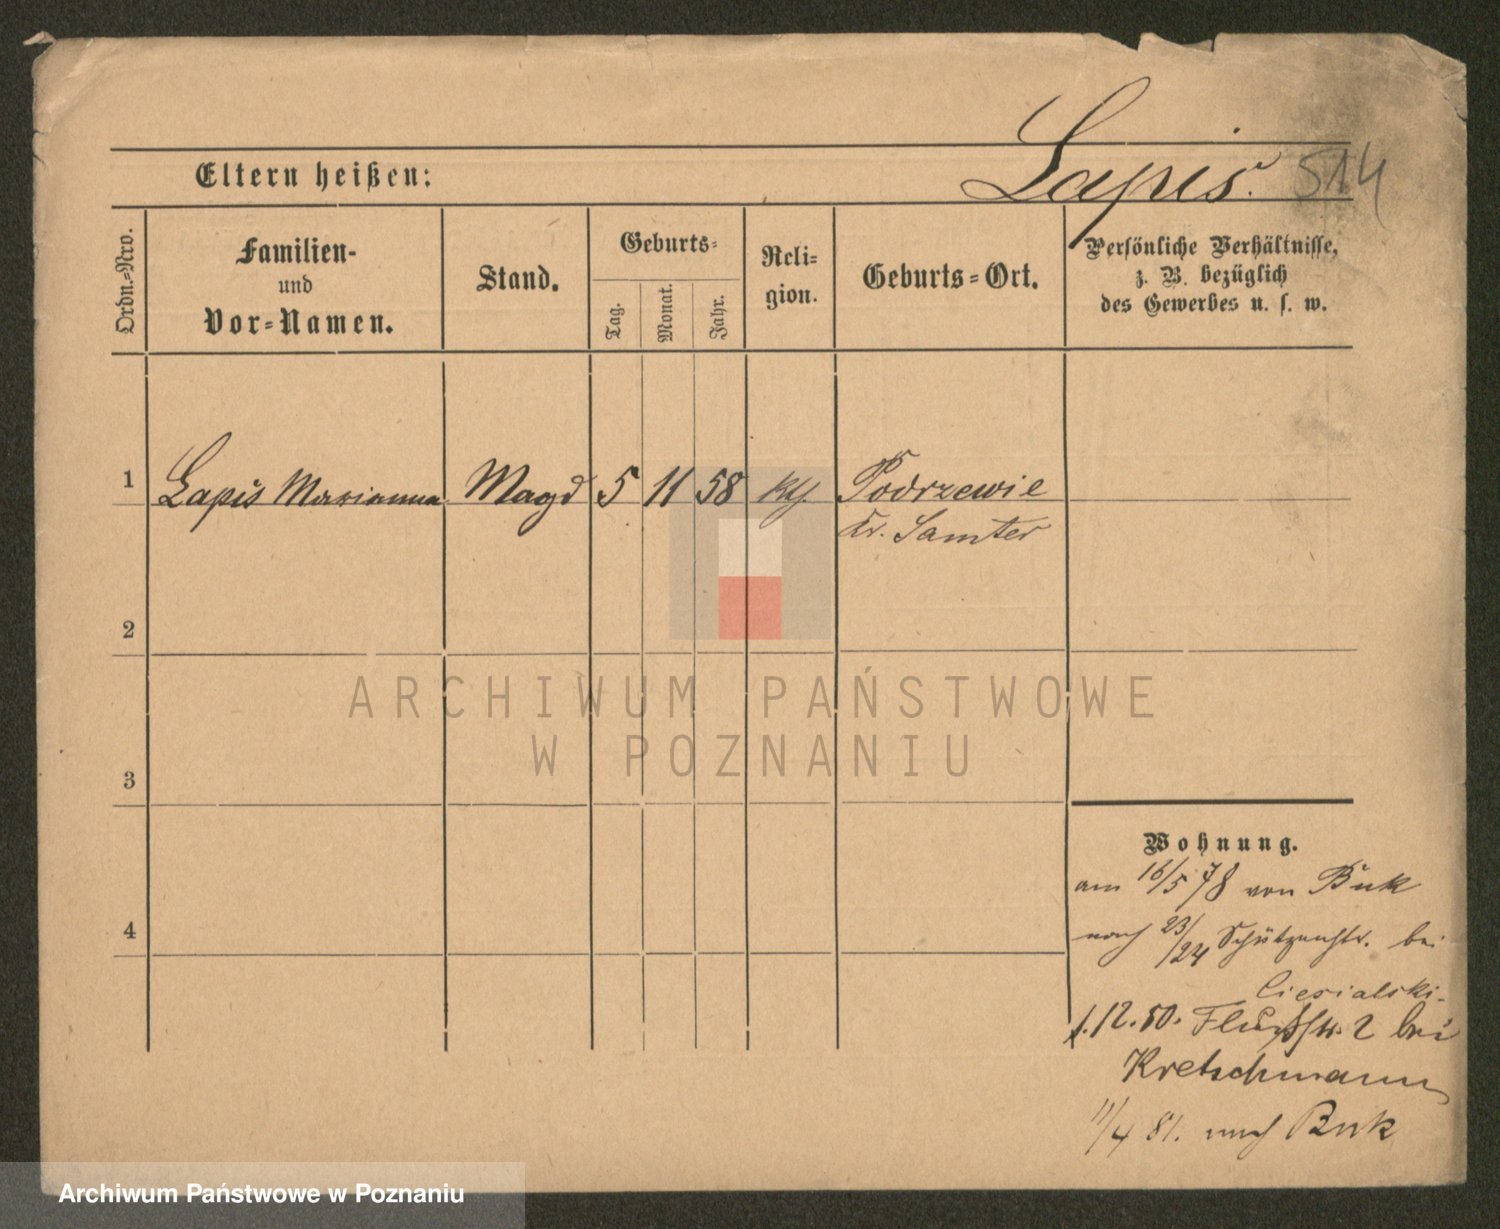 Lapis. 514
Eltern heißen:
Ordn.-Nro.
Familien-
und
Vor-Namen.
Stand.
Geburts-
Tag.
Monat.
Jahr.
Reli-
gion.
Geburts-Ort.
Persönliche Verhältnisse,
z. B. bezüglich
des Gewerbes u. s. w.
1 Lapis Marianna Magd 5 11 58 kth. Podrzewie
Kr. Samter
2
3
4
ARCHIWUM PAŃSTWOWE
W POZNANIU
Wohnung.
am 16/5 78 von Buk
nach 23/24 Schützenstr. bei
Ciesialski.
1.12.80. 2 bei
Kretschmann
11/4 81. nach Buk
Archiwum Państwowe w Poznaniu